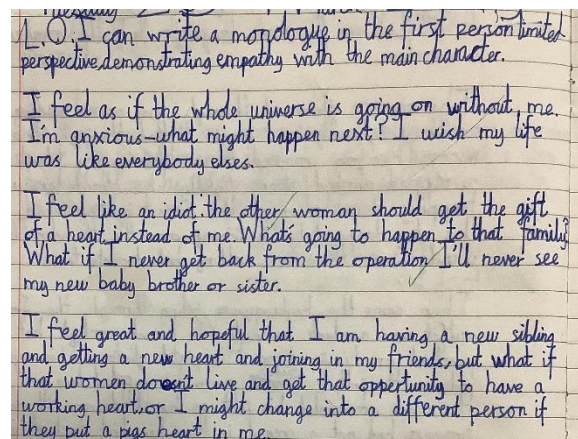 L.O: I can write a monologue in the first person limited
perspective demonstrating empathy with the main character.
I feel as if the whole universe is going on without me.
I'm anxious-what might happen next? I wish my life
was like everybody elses.
I feel like an idiot. the other woman should get the gift
of a heart instead of me. What's going to happen to that family?
What if I never get back from the operation I'll never see
my new baby brother or sister.
I feel great and hopeful that I am having a new sibling
and getting a new heart and joining in my friends, but what if
that women doesnt live and get that oppertunity to have a
working heart, or I might change into a different person if
they put a pigs heart in me.